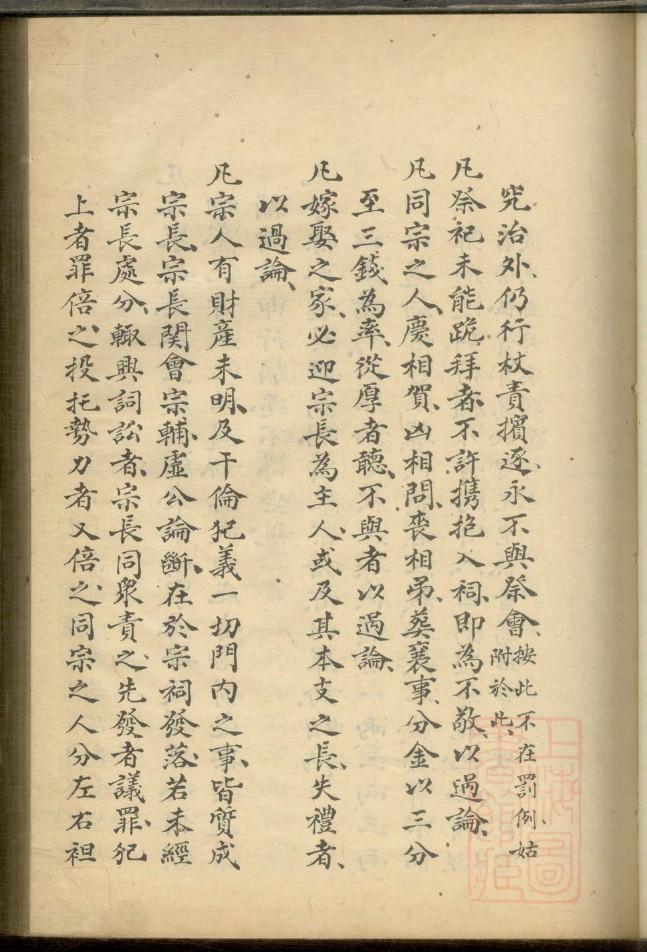 究治外、仍行杖責擯逐、永不與祭會、按此不在罰例、姑
附於此、
凡祭祀未能跪拜者、不許携抱入祠、即為不敬、以過論、
凡同宗之人、慶相賀、凶相問、喪相弔、葬襄事、分金以三分
至三錢為率、從厚者聽、不與者以過論、
凡嫁娶之家、必迎宗長為主人、或及其本支之長、失禮者、
以過論、
凡宗人有財產未明、及干倫犯義一切門內之事、皆質成
宗長、宗長関會宗輔、虛公論斷、在於宗祠發落、若未經
宗長處分、輙興詞訟者、宗長同衆責之、先發者議罪、犯
上者罪倍之、投托勢力者又倍之、同宗之人分左右袒
上海圖
書館藏